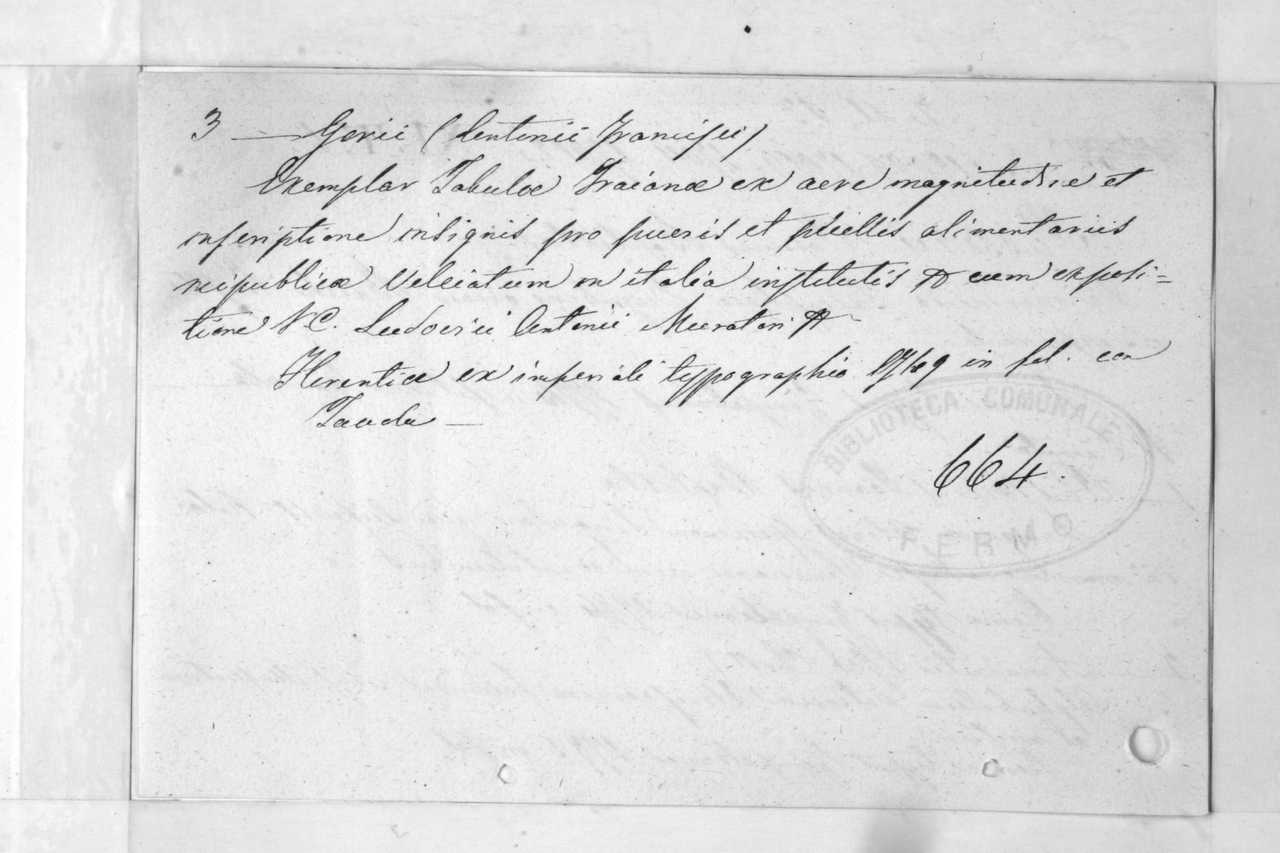 3 — Gorii (Antonii Francisci)
Exemplar Tabulæ Traianæ ex aere magnitudine et
inscriptione insignis pro pueris et puellis alimentariis
reipublicæ Velleiatum in italia institutis & cum exposi=
tione V.C. Ludovici Antonii Muratori &
Florentiæ ex imperiali typographia 1749 in fol. con
Tavola —
664.
BIBLIOTECA COMUNALE
FERMO